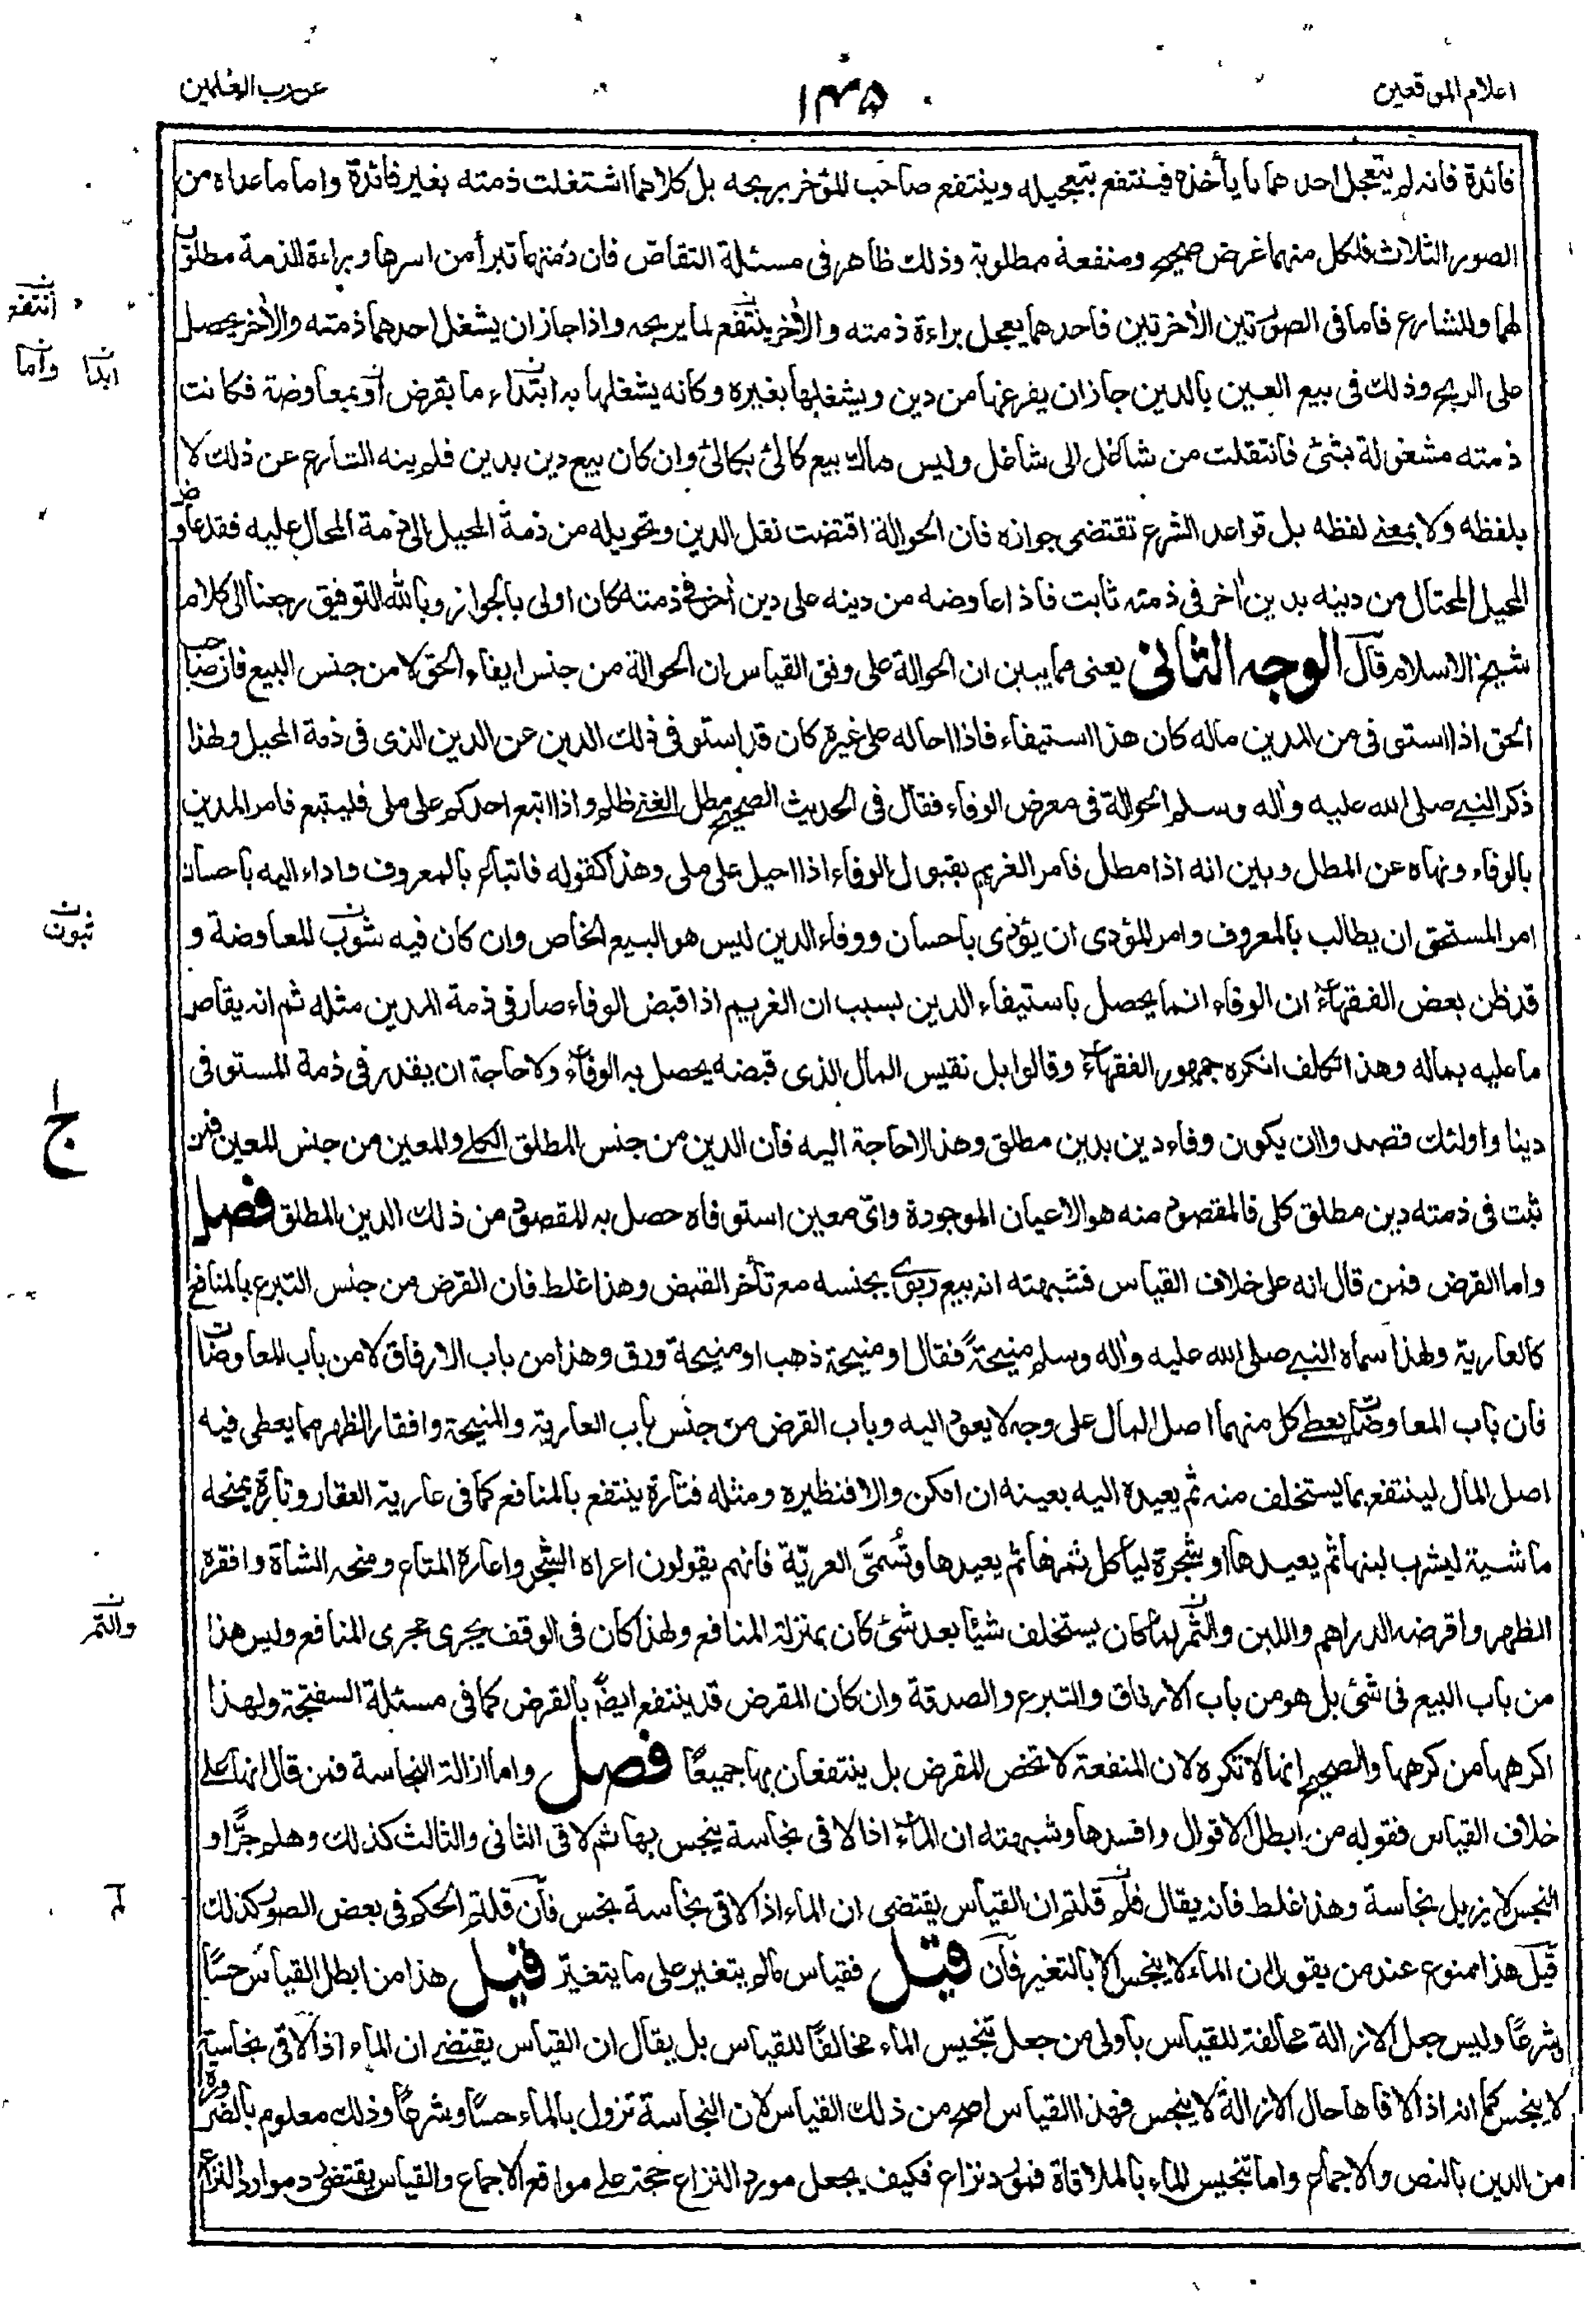 اعلام الموقعين
١٣٥
عن رب العلمين
فائدة فانه لم يتعجل احدهما ما يأخذه فينتفع بتعجيله وينتفع صاحب المؤخر بربحه بل كلاهما اشتغلت ذمته بغير فائدة واما ما عداه من
الصور الثلاث فلكل منهما غرض صحيح ومنفعة مطلوبة وذلك ظاهر فى مسئلة التقاص فان ذمتهما تبرأ من اسرها وبراءة الذمة مطلوب
لهما وللشارع فاما فى الصورتين الأخرتين فاحدهما يعجل براءة ذمته والأخر ينتفع لما يربحه واذا جاز ان يشغل احدهما ذمته والأخر يحصل
على الربح وذلك فى بيع العين بالدين جاز ان يفرغها من دين ويشغلها بغيره وكانه يشغلها به ابتداء ما بقرض او بمعاوضة فكانت
ذمته مشغولة بشئ فانتقلت من شاغل الى شاغل وليس هناك بيع كالئ بكالئ وان كان بيع دين بدين فلم ينه الشارع عن ذلك لا
بلفظه ولا بمعنى لفظه بل قواعد الشرع تقتضى جوازه فان الحوالة اقتضت نقل الدين وتحويله من ذمة المحيل الى ذمة المحال عليه فقد عاوض
المحيل المحتال من دينه بدين أخر فى ذمته ثابت فاذا عاوضه من دينه على دين أخر فى ذمته كان اولى بالجواز وبالله التوفيق رجعنا الى كلام
شيخ الاسلام قال الوجه الثانى يعنى مما يبين ان الحوالة على وفق القياس ان الحوالة من جنس ايفاء الحق لا من جنس البيع فان صاحب
الحق اذا استوفى من المدين ماله كان هذا استيفاء فاذا احاله على غيره كان قد استوفى ذلك الدين عن الدين الذى فى ذمة المحيل ولهذا
ذكر النبي صلى الله عليه وأله وسلم الحوالة فى معرض الوفاء فقال فى الحديث الصحيح مطل الغني ظلم واذا اتبع احدكم على ملى فليتبع فامر المدين
بالوفاء ونهاه عن المطل وبين انه اذا مطل فامر الغريم بقبول الوفاء اذا احيل على ملى وهذا كقوله فاتباع بالمعروف واداء اليه باحسان
امر المستحق ان يطالب بالمعروف وامر المؤدى ان يؤدى باحسان ووفاء الدين ليس هو البيع الخاص وان كان فيه شوب للمعاوضة و
قد ظن بعض الفقهاء ان الوفاء انما يحصل باستيفاء الدين بسبب ان الغريم اذا قبض الوفاء صار فى ذمة المدين مثله ثم انه يقاص
ما عليه بماله وهذا تكلف انكره جمهور الفقهاء وقالوا بل نفس المال الذى قبضه يحصل به الوفاء ولا حاجة ان يقدر فى ذمة المستوفى
دينا واولئك قصدوا ان يكون وفاء دين بدين مطلق وهذا لا حاجة اليه فان الدين من جنس المطلق الكلي والمعين من جنس المعين فمن
ثبت فى ذمته دين مطلق كلى فالمقصود منه هو الاعيان الموجودة واى معين استوفاه حصل به المقصود من ذلك الدين المطلق فصل
واما القرض فمن قال انه على خلاف القياس فشبهته انه بيع ربوى بجنسه مع تأخر القبض وهذا غلط فان القرض من جنس التبرع بالمنافع
كالعارية ولهذا سماه النبي صلى الله عليه وأله وسلم منيحة فقال او منيحة ذهب او منيحة ورق وهذا من باب الارفاق لا من باب المعاوضات
فان باب المعاوضات يعطي كل منهما اصل المال على وجه لا يعود اليه وباب القرض من جنس باب العارية والمنيحة وافقار الظهر مما يعطى فيه
اصل المال لينتفع بما يستخلف منه ثم يعيده اليه بعينه ان امكن والا فنظيره ومثله فتارة ينتفع بالمنافع كما فى عارية العقار وتارة يمنحه
ماشية ليشرب لبنها ثم يعيدها او شجرة ليأكل ثمرها ثم يعيدها وتسمى العرية فانهم يقولون اعراه الشجر واعاره المتاع ومنحه الشاة وافقره
الظهر واقرضه الدراهم واللبن والثمر لما كان يستخلف شيأ بعد شئ كان بمنزلة المنافع ولهذا كان فى الوقف يجرى مجرى المنافع وليس هذا
من باب البيع فى شئ بل هو من باب الارفاق والتبرع والصدقة وان كان المقرض قد ينتفع ايضا بالقرض كما فى مسئلة السفتجة ولهذا
اكرهها من كرهها والصحيح انها لا تكره لان المنفعة لا تخص المقرض بل ينتفعان بها جميعا فصل واما ازالة النجاسة فمن قال انها على
خلاف القياس فقوله من ابطل الاقوال وافسدها وشبهته ان الماء اذا لاقى نجاسة ينجس بها ثم لاقى الثانى والثالث كذلك وهلم جرا و
النجس لا يزيل نجاسة وهذا غلط فانه يقال فلم قلتم ان القياس يقتضى ان الماء اذا لاقى نجاسة نجس فان قلتم الحكم فى بعض الصور كذلك
قيل هذا ممنوع عند من يقول ان الماء لا ينجس الا بالتغير فان قيل فقياس ما لم يتغير على ما يتغير قيل هذا من ابطل القياس حسا
وشرعا وليس جعل الازالة مخالفة للقياس باولى من جعل تنجيس الماء مخالفا للقياس بل يقال ان القياس يقتضي ان الماء اذا لاقى نجاسة
لا ينجس كما انه اذا لاقاها حال الازالة لا ينجس فهذا القياس اصح من ذلك القياس لان النجاسة تزول بالماء حسا وشرعا وذلك معلوم بالضرورة
من الدين بالنص والاجماع واما تنجيس الماء بالملاقاة فمورد نزاع فكيف يجعل مورد النزاع حجة على مواقع الاجماع والقياس يقتضى رد موارد النزاع
انتفع
ابدا
واما
ثبوت
ج
والتمر
لم